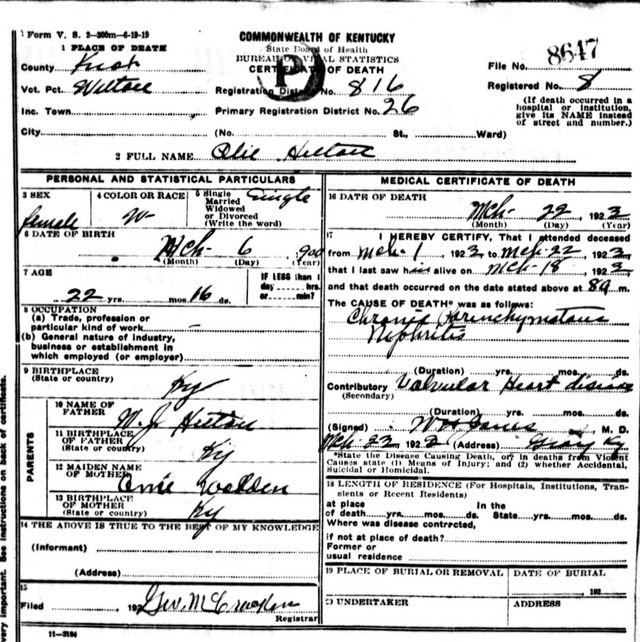 Form V. S. 2—200m—6-19-19
COMMONWEALTH OF KENTUCKY
State Board of Health
BUREAU OF VITAL STATISTICS
CERTIFICATE OF DEATH
1 PLACE OF DEATH
County Knox
Vot. Pct. Wilton
Inc. Town
City (No. St., Ward)
Registration District No. 816
Primary Registration District No. 26
File No. 8647
Registered No. 8
(If death occurred in a hospital or institution, give its NAME instead of street and number.)
2 FULL NAME Olie Hilton
PERSONAL AND STATISTICAL PARTICULARS
3 SEX female
4 COLOR OR RACE W
5 Single Married Widowed or Divorced (Write the word) Single
6 DATE OF BIRTH Mch 6 900
(Month) (Day) (Year)
7 AGE 22 yrs. mos. 16 ds.
IF LESS than 1 day ---- hrs. or ---- min?
8 OCCUPATION
(a) Trade, profession or particular kind of work
(b) General nature of industry, business or establishment in which employed (or employer)
9 BIRTHPLACE (State or country) Ky
PARENTS
10 NAME OF FATHER W. J. Hilton
11 BIRTHPLACE OF FATHER (State or country) Ky
12 MAIDEN NAME OF MOTHER
13 BIRTHPLACE OF MOTHER (State or country) Ky
14 THE ABOVE IS TRUE TO THE BEST OF MY KNOWLEDGE
(Informant)
(Address)
15
Filed 192 Geo. Registrar
11—3184
MEDICAL CERTIFICATE OF DEATH
16 DATE OF DEATH
Mch- 22, 1923
(Month) (Day) (Year)
17 I HEREBY CERTIFY, That I attended deceased
from Mch-1, 1923 to Mch-22, 1923
that I last saw h alive on Mch-18, 1923
and that death occurred on the date stated above at 8 A m.
The CAUSE OF DEATH* was as follows:
Chronic Parenchymatous
Nephritis
(Duration) yrs. mos. ds.
Contributory Valvular Heart disease
(Secondary)
(Duration) yrs. mos. ds.
(Signed) M. D.
Mch-23 1923 (Address) Gray Ky
*State the Disease Causing Death, or, in deaths from Violent Causes state (1) Means of Injury; and (2) whether Accidental, Suicidal or Homicidal.
18 LENGTH OF RESIDENCE (For Hospitals, Institutions, Transients or Recent Residents)
at place of death yrs. mos. ds. In the State yrs. mos. ds.
Where was disease contrcted,
if not at place of death?
Former or usual residence
19 PLACE OF BURIAL OR REMOVAL DATE OF BURIAL
192
20 UNDERTAKER ADDRESS
very important. See instructions on back of certificate.